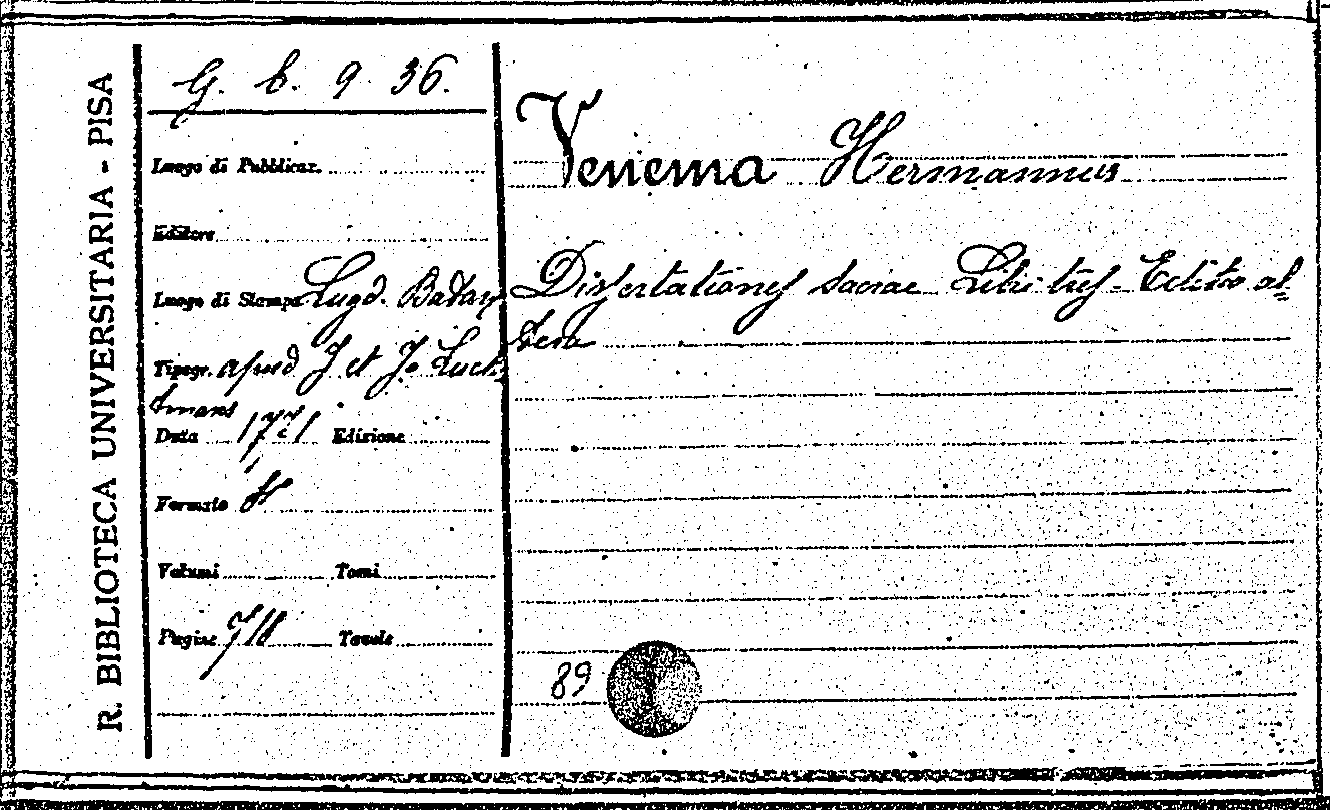 R. BIBLIOTECA UNIVERSITARIA - PISA
G. b. 9. 36.
Luogo di Pubblicaz.
Editore
Luogo di Stampa Lugd. Batav
Tipogr. apud J et Jo Luch=
tmans
Data 1771 Edizione
Formato
Volumi Tomi
Pagine 718 Tavole
Venema Hermannus
Dissertationes sacrae Libri tres - Editio al=
tera
89